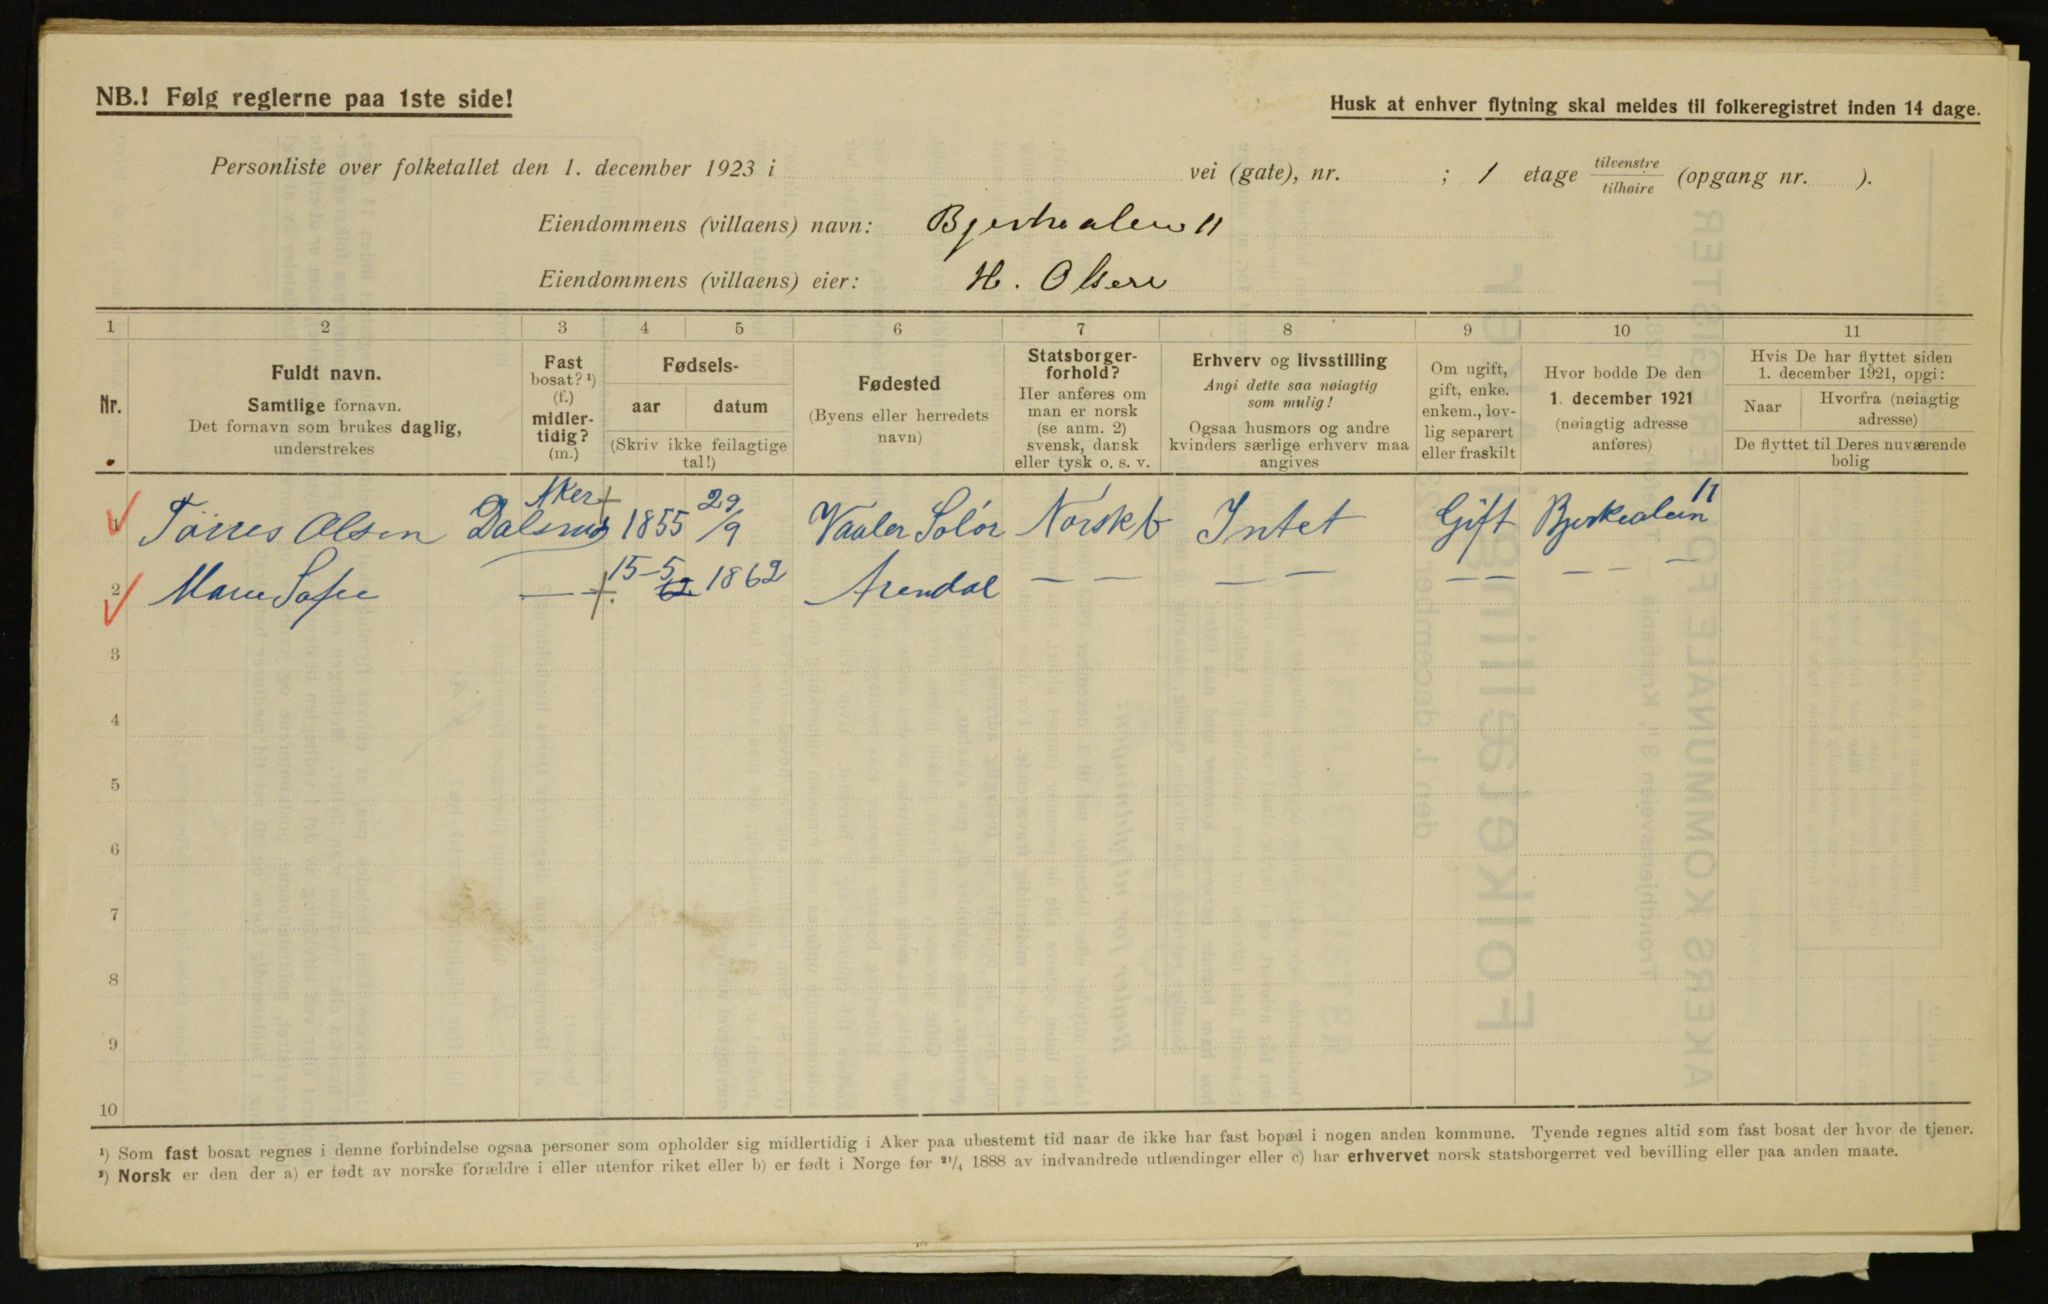 NB.! Følg reglerne paa 1ste side!
Husk at enhver flytning skal meldes til folkeregistret inden 14 dage.
Personliste over folketallet den 1. december 1923 i vei (gate), nr. ; 1 etage tilvenstre tilhøire (opgang nr. ).
Eiendommens (villaens) navn: Bjerkealeen 11
Eiendommens (villaens) eier: H. Olsen
1 2 3 4 5 6 7 8 9 10 11
Nr.
Fuldt navn.
Samtlige fornavn.
Det fornavn som brukes daglig,
understrekes
Fast
bosat? ¹)
(f.)
midler-
tidig?
(m.)
Fødsels-
aar datum
(Skriv ikke feilagtige
tal!)
Fødested
(Byens eller herredets
navn)
Statsborger-
forhold?
Her anføres om
man er norsk
(se anm. 2)
svensk, dansk
eller tysk o. s. v.
Erhverv og livsstilling
Angi dette saa nøiagtig
som mulig!
Ogsaa husmors og andre
kvinders særlige erhverv maa
angives
Om ugift,
gift, enke.
enkem., lov-
lig separert
eller fraskilt
Hvor bodde De den
1. december 1921
(nøiagtig adresse
anføres)
Hvis De har flyttet siden
1. december 1921, opgi:
Naar
Hvorfra (nøiagtig
adresse)
De flyttet til Deres nuværende
bolig
1 Törres Olsen Dalsnes Aker 1855 29/9 Vaaler Solör Norsk Intet Gift Bjerkealeen 11
2 Marie Sofie — 15-5 62 1862 Arendal — — — — — — — — —
3
4
5
6
7
8
9
10
¹) Som fast bosat regnes i denne forbindelse ogsaa personer som opholder sig midlertidig i Aker paa ubestemt tid naar de ikke har fast bopæl i nogen anden kommune. Tyende regnes altid som fast bosat der hvor de tjener.
²) Norsk er den der a) er født av norske forældre i eller utenfor riket eller b) er født i Norge før ²¹/₄ 1888 av indvandrede utlændinger eller c) har erhvervet norsk statsborgerret ved bevilling eller paa anden maate.